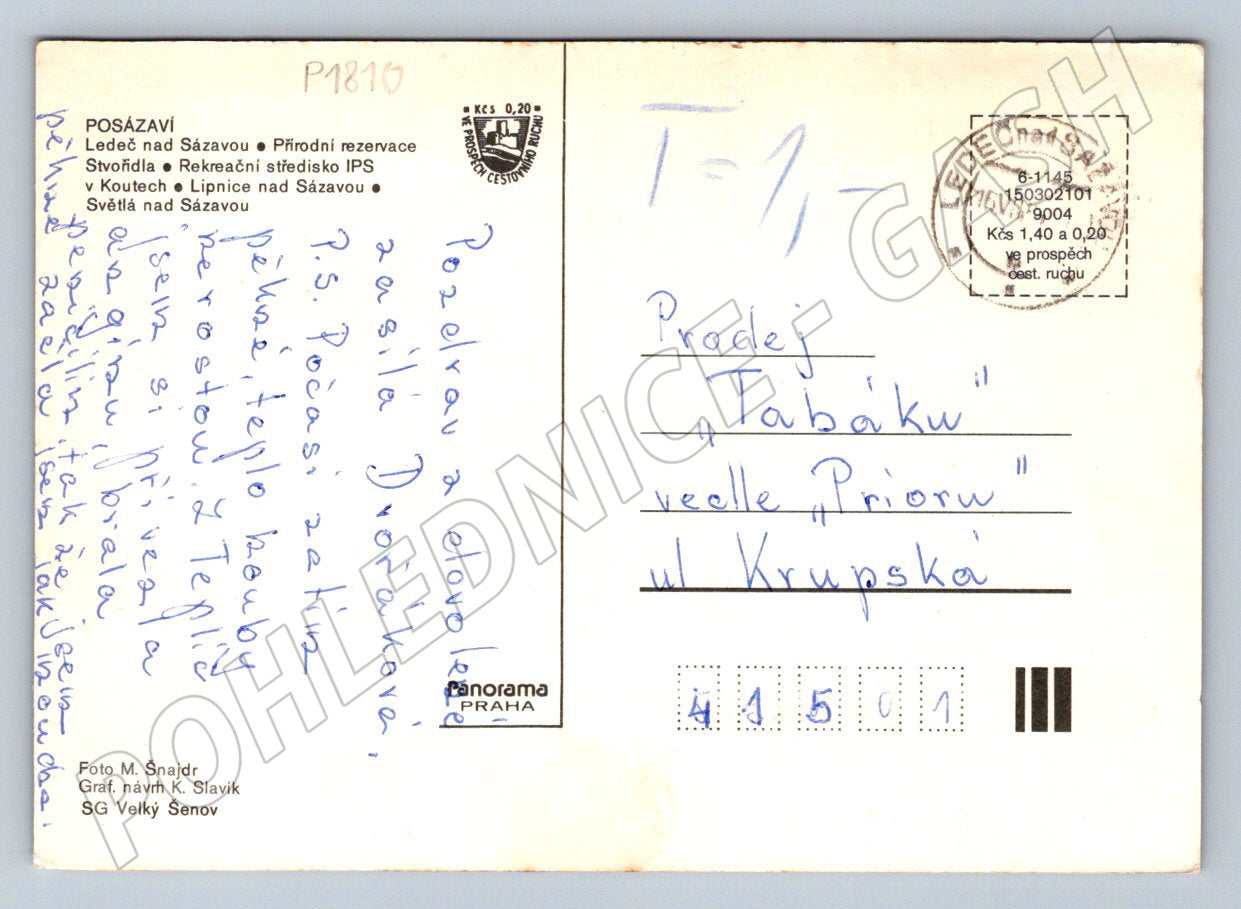 P1810
POSÁZAVÍ
Ledeč nad Sázavou ● Přírodní rezervace
Stvořidla ● Rekreační středisko IPS
v Koutech ● Lipnice nad Sázavou ●
Světlá nad Sázavou
Kčs 0,20
VE PROSPĚCH CESTOVNÍHO RUCHU
T = 1,-
LEDEČ nad SÁZAVOU
6-1145
150302101
9004
Kčs 1,40 a 0,20
ve prospěch
čest. ruchu
Pozdrav z dovolené
zasílá Dvořáková.
P.S. Počasí zatím
pěkné, teplo houby
nerostou. Z Teplic
jsem si přivezla
angínu, brala
penicilin, tak že jsem
pěkně začla jsem jak
Prodej
„Tabáku"
vedle „Prioru"
ul Krupská
41501
Panorama
PRAHA
Foto M. Šnajdr
Graf. návrh K. Slavík
SG Velký Šenov
POHLEDNICE - GASH